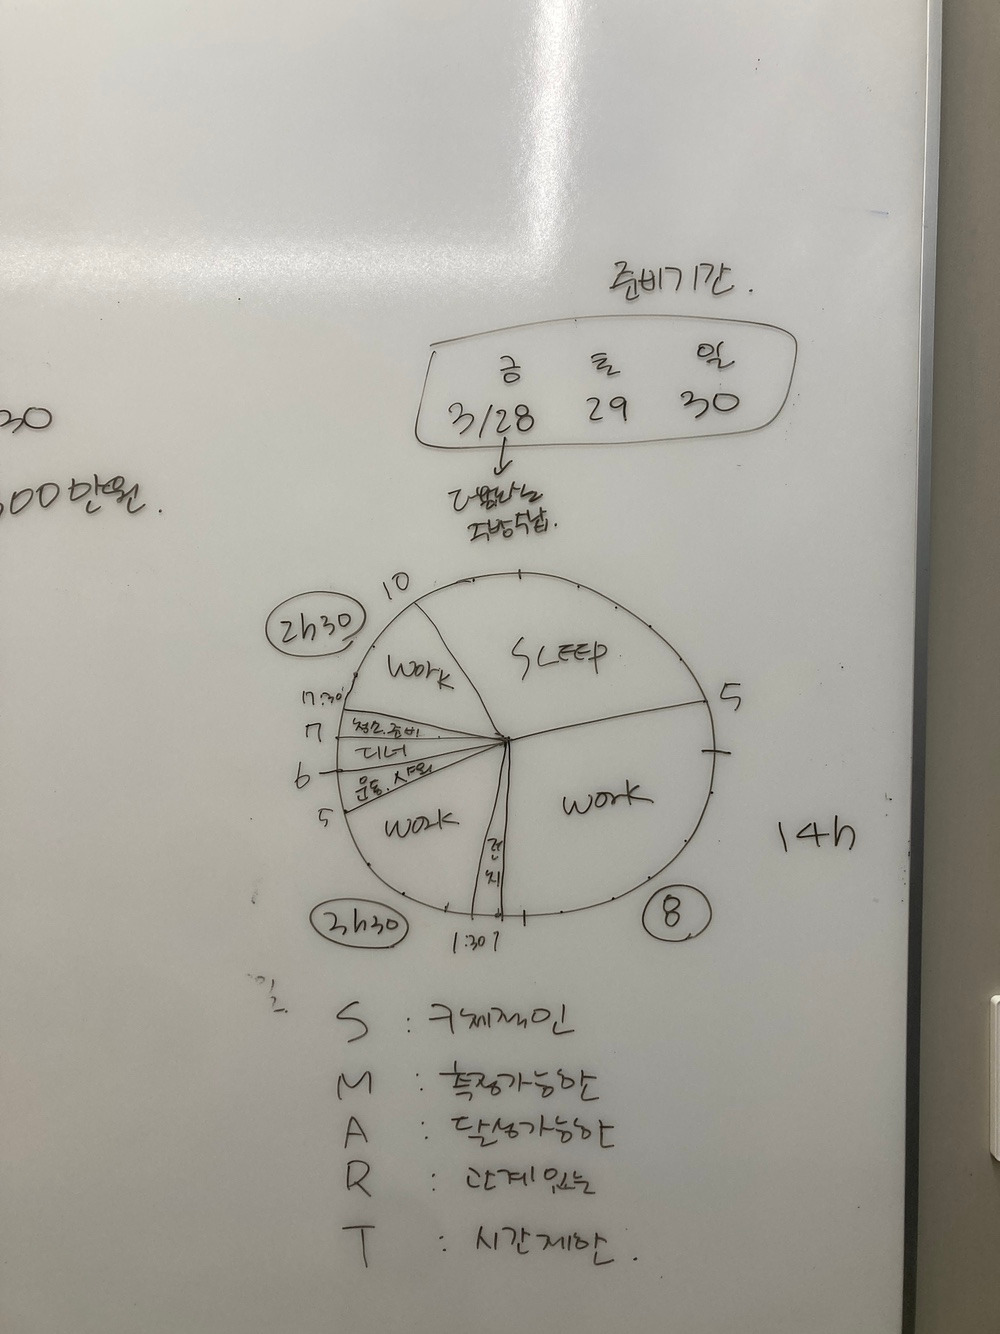 준비기간.
금 토 일
3/28 29 30
30
00만원.
수납.
10
2h30
WORK
SLEEP
5
7:30
청소.준비
7
디너
6
운동.샤워
5
WORK
WORK
런치
14h
3h30
8
1:30 1
S : 구체적인
M : 측정가능한
A : 달성가능한
R : 관계있는
T : 시간제한.